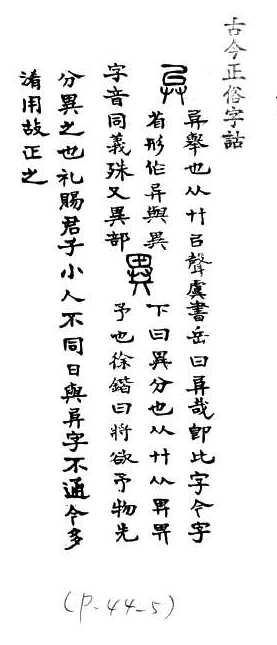 古今正俗字詁
异
异舉也从廾㠯聲虞書岳曰异哉卽此字今字
省形作异與異
字音同義殊又異部
異
下曰異分也从廾从畀畀
予也徐鍇曰將欲予物先
分異之也礼賜君子小人不同日與异字不通今多
淆用故正之
(P-44-5)